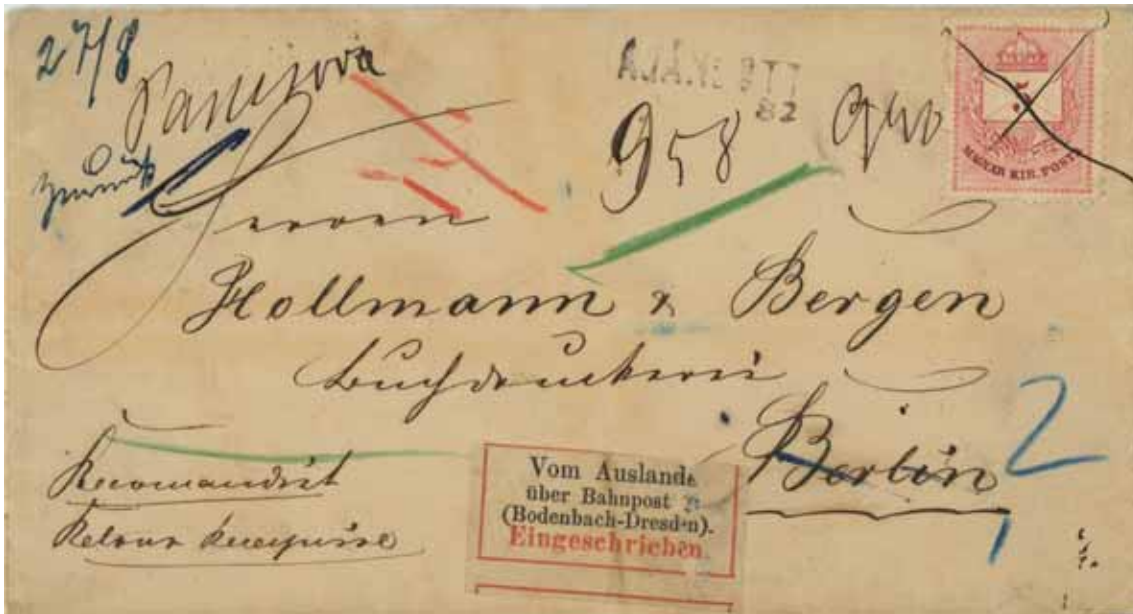 27/8
AJÁNLOTT
82
958
5
MAGYAR KIR. POSTA
Herren
Hollmann & Bergen
Buchdruckerei
Berlin
2
Recomandirt
Retour Recepisse
Vom Auslande
über Bahnpost
(Bodenbach-Dresden).
Eingeschrieben.